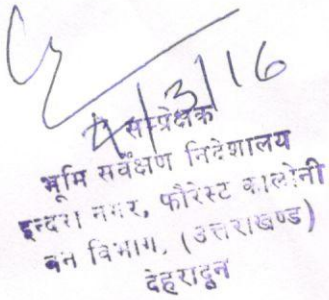 4/3/16
सम्प्रेक्षक
भूमि सर्वेक्षण निदेशालय
इन्दरा नगर, फौरेस्ट कालोनी
वन विभाग, (उत्तराखण्ड)
देहरादून